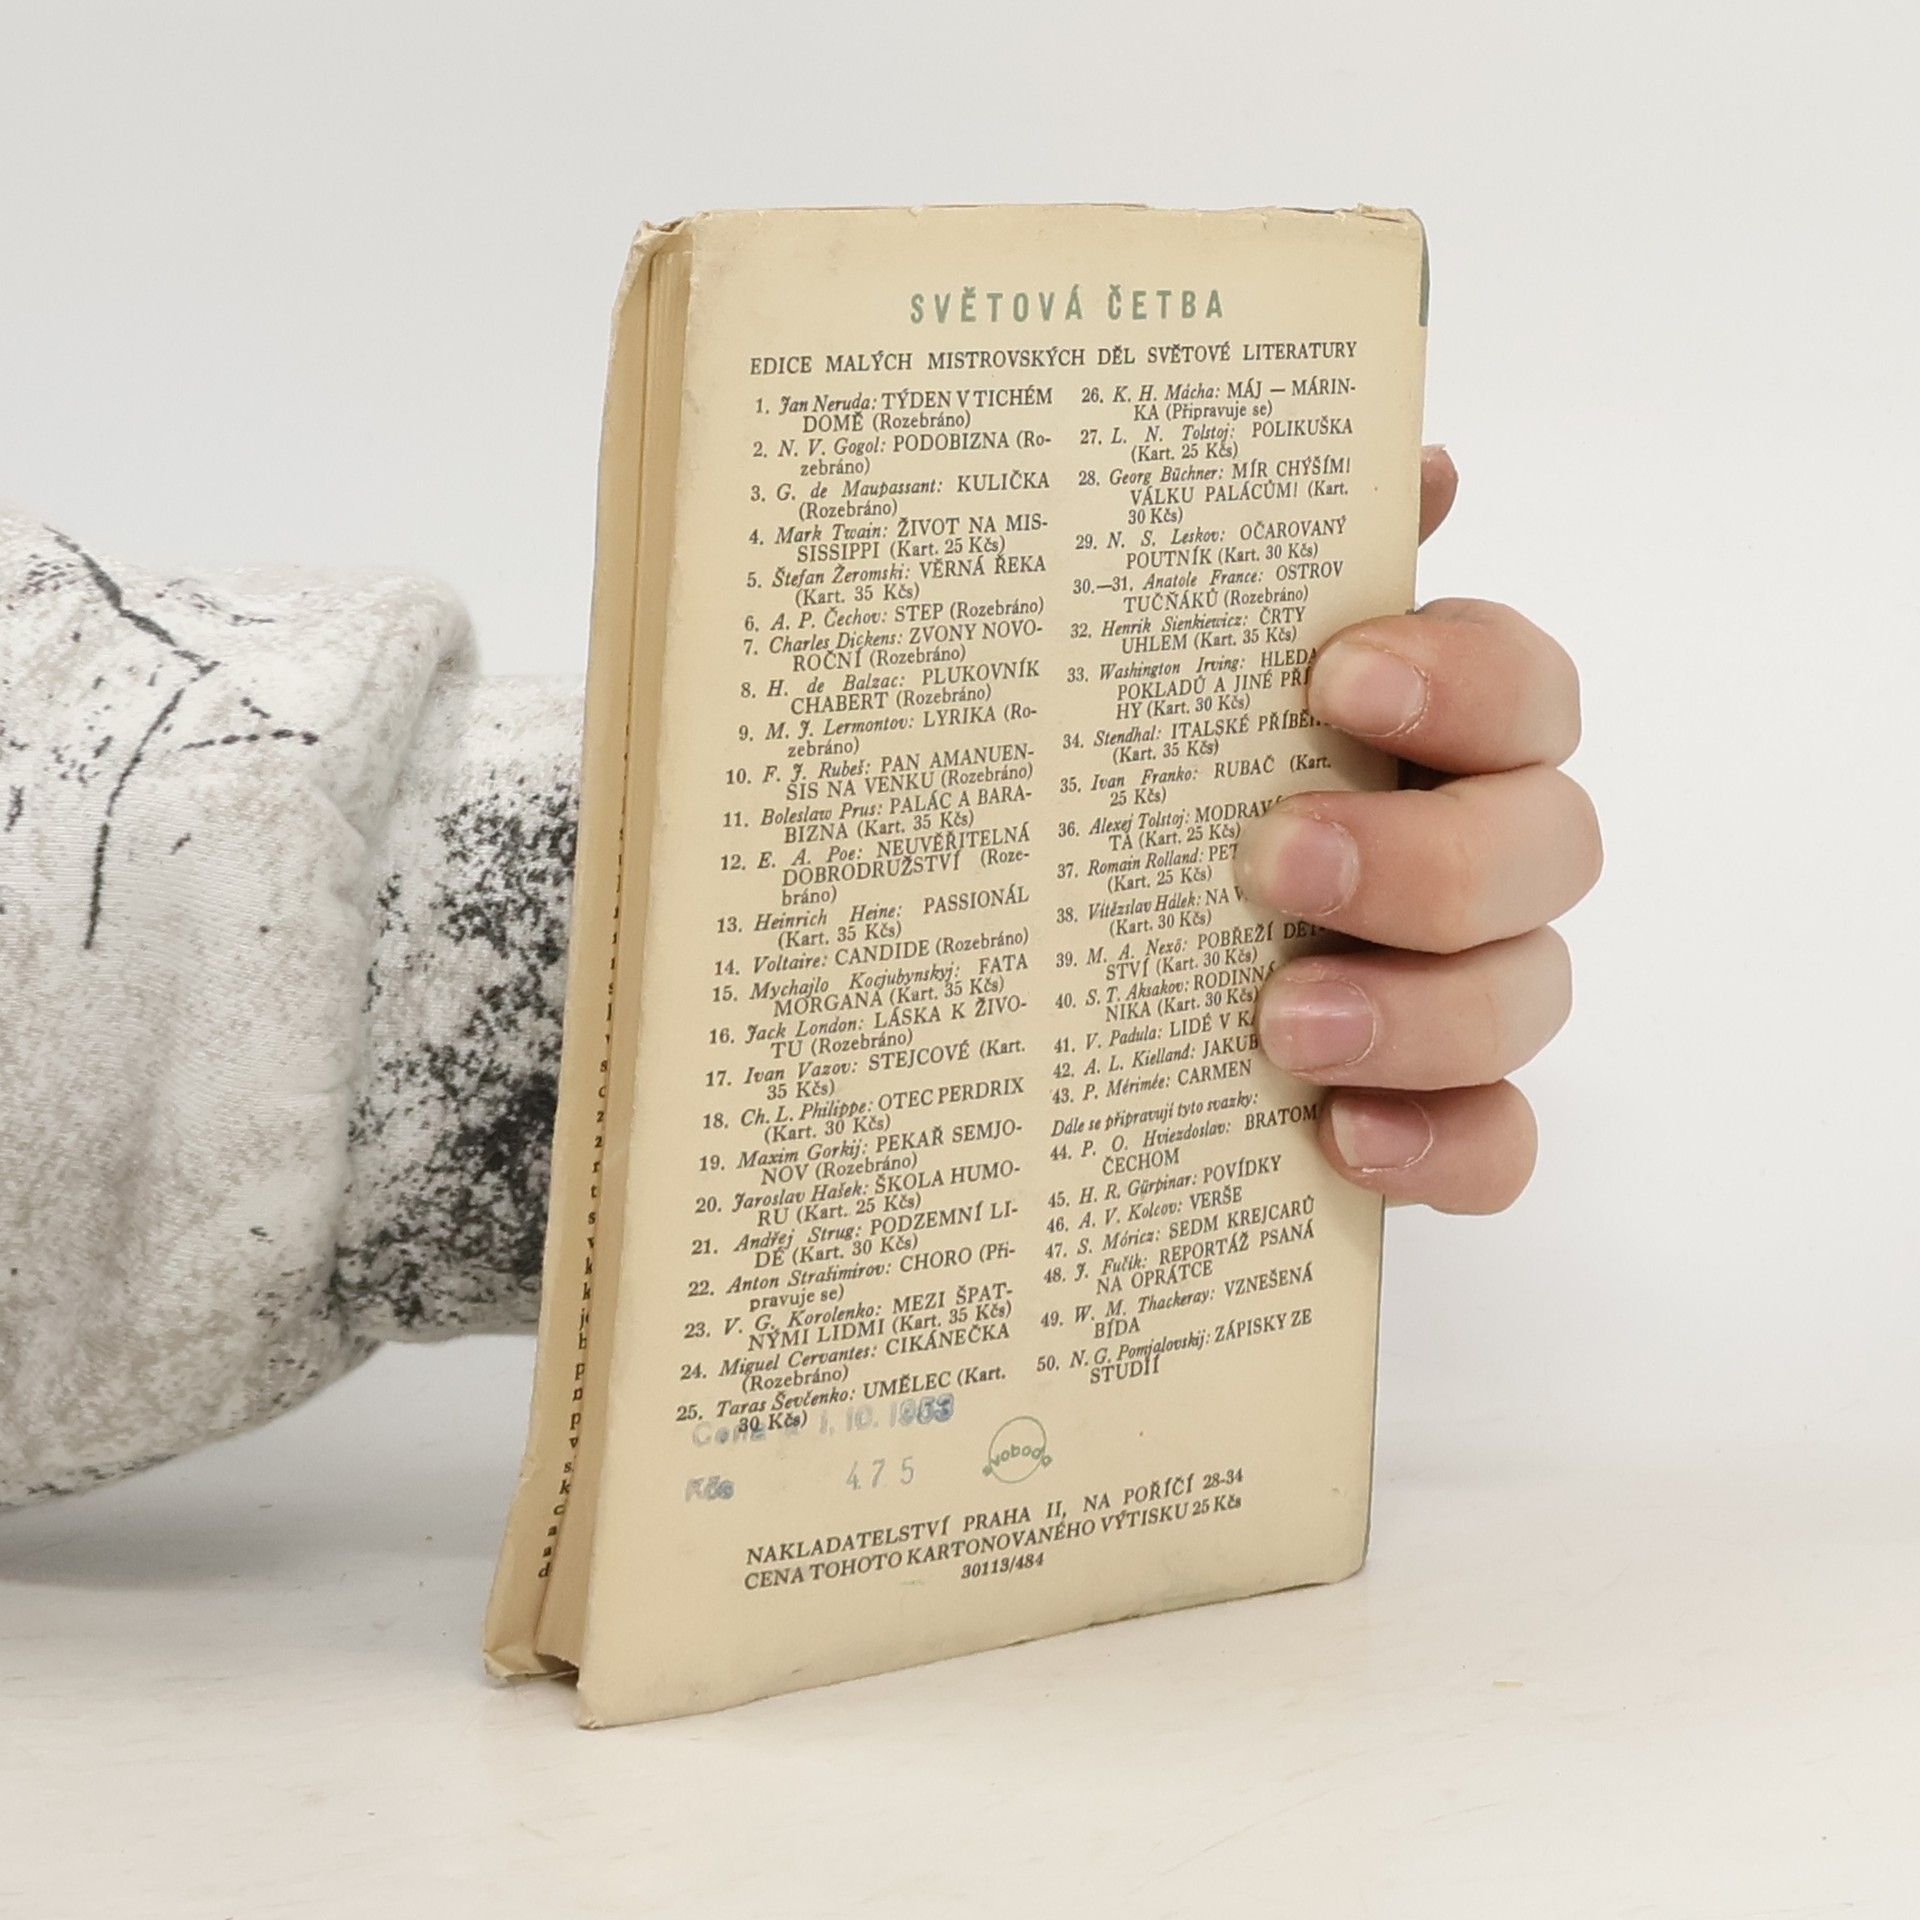 SVĚTOVÁ ČETBA
EDICE MALÝCH MISTROVSKÝCH DĚL SVĚTOVÉ LITERATURY
1. Jan Neruda: TÝDEN V TICHÉM
DOMĚ (Rozebráno)
2. N. V. Gogol: PODOBIZNA (Ro-
zebráno)
3. G. de Maupassant: KULIČKA
(Rozebráno)
4. Mark Twain: ŽIVOT NA MIS-
SISSIPPI (Kart. 25 Kčs)
5. Štefan Žeromski: VĚRNÁ ŘEKA
(Kart. 35 Kčs)
6. A. P. Čechov: STEP (Rozebráno)
7. Charles Dickens: ZVONY NOVO-
ROČNÍ (Rozebráno)
8. H. de Balzac: PLUKOVNÍK
CHABERT (Rozebráno)
9. M. J. Lermontov: LYRIKA (Ro-
zebráno)
10. F. J. Rubeš: PAN AMANUEN-
SIS NA VENKU (Rozebráno)
11. Boleslaw Prus: PALÁC A BARA-
BIZNA (Kart. 35 Kčs)
12. E. A. Poe: NEUVĚŘITELNÁ
DOBRODRUŽSTVÍ (Roze-
bráno)
13. Heinrich Heine: PASSIONÁL
(Kart. 35 Kčs)
14. Voltaire: CANDIDE (Rozebráno)
15. Mychajlo Kocjubynskyj: FATA
MORGANA (Kart. 35 Kčs)
16. Jack London: LÁSKA K ŽIVO-
TU (Rozebráno)
17. Ivan Vazov: STEJCOVÉ (Kart.
35 Kčs)
18. Ch. L. Philippe: OTEC PERDRIX
(Kart. 30 Kčs)
19. Maxim Gorkij: PEKAŘ SEMJO-
NOV (Rozebráno)
20. Jaroslav Hašek: ŠKOLA HUMO-
RU (Kart. 25 Kčs)
21. Andřej Strug: PODZEMNÍ LI-
DÉ (Kart. 30 Kčs)
22. Anton Strašimirov: CHORO (Při-
pravuje se)
23. V. G. Korolenko: MEZI ŠPAT-
NÝMI LIDMI (Kart. 35 Kčs)
24. Miguel Cervantes: CIKÁNEČKA
(Rozebráno)
25. Taras Ševčenko: UMĚLEC (Kart.
30 Kčs)
26. K. H. Mácha: MÁJ — MÁRIN-
KA (Připravuje se)
27. L. N. Tolstoj: POLIKUŠKA
(Kart. 25 Kčs)
28. Georg Büchner: MÍR CHÝŠÍM!
VÁLKU PALÁCŮM! (Kart.
30 Kčs)
29. N. S. Leskov: OČAROVANÝ
POUTNÍK (Kart. 30 Kčs)
30.—31. Anatole France: OSTROV
TUČŇÁKŮ (Rozebráno)
32. Henrik Sienkiewicz: ČRTY
UHLEM (Kart. 35 Kčs)
33. Washington Irving: HLEDA
POKLADŮ A JINÉ PŘÍ
HY (Kart. 30 Kčs)
34. Stendhal: ITALSKÉ PŘÍBĚ
(Kart. 35 Kčs)
35. Ivan Franko: RUBAČ (Kart.
25 Kčs)
36. Alexej Tolstoj: MODRAV
TA (Kart. 25 Kčs)
37. Romain Rolland: PET
(Kart. 25 Kčs)
38. Vítězslav Hálek: NA V
(Kart. 30 Kčs)
39. M. A. Nexö: POBŘEŽÍ DĚT-
STVÍ (Kart. 30 Kčs)
40. S. T. Aksakov: RODINN
NIKA (Kart. 30 Kčs)
41. V. Padula: LIDÉ V K
42. A. L. Kielland: JAKUB
43. P. Mérimée: CARMEN
Dále se připravují tyto svazky:
44. P. O. Hviezdoslav: BRATOM
ČECHOM
45. H. R. Gürpinar: POVÍDKY
46. A. V. Kolcov: VERŠE
47. S. Móricz: SEDM KREJCARŮ
48. J. Fučík: REPORTÁŽ PSANÁ
NA OPRÁTCE
49. W. M. Thackeray: VZNEŠENÁ
BÍDA
50. N. G. Pomjalovskij: ZÁPISKY ZE
STUDIÍ
1. 10. 1953
Kčs 4 7 5
Svoboda
NAKLADATELSTVÍ PRAHA II, NA POŘÍČÍ 28-34
CENA TOHOTO KARTONOVANÉHO VÝTISKU 25 Kčs
30113/484